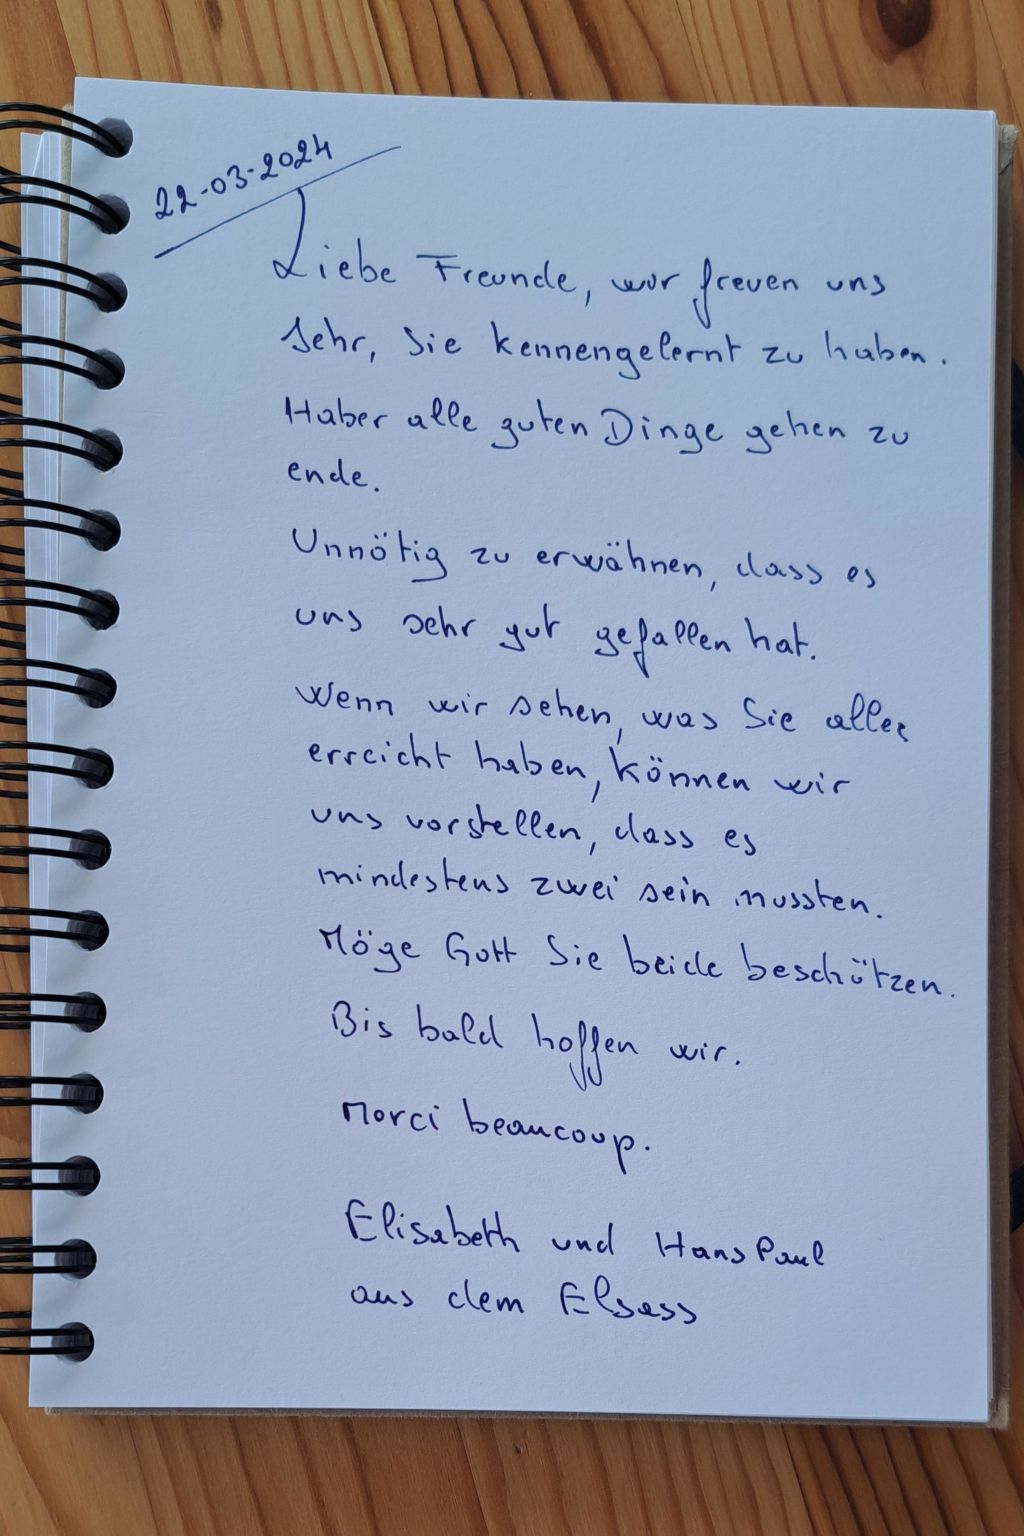 22-03-2024
Liebe Freunde, wir freuen uns
sehr, Sie kennengelernt zu haben.
Haber alle guten Dinge gehen zu
ende.
Unnötig zu erwähnen, dass es
uns sehr gut gefallen hat.
Wenn wir sehen, was Sie alles
erreicht haben, können wir
uns vorstellen, dass es
mindestens zwei sein mussten.
Möge Gott Sie beide beschützen.
Bis bald hoffen wir.
Merci beaucoup.
Elisabeth und Hans Paul
aus dem Elsass